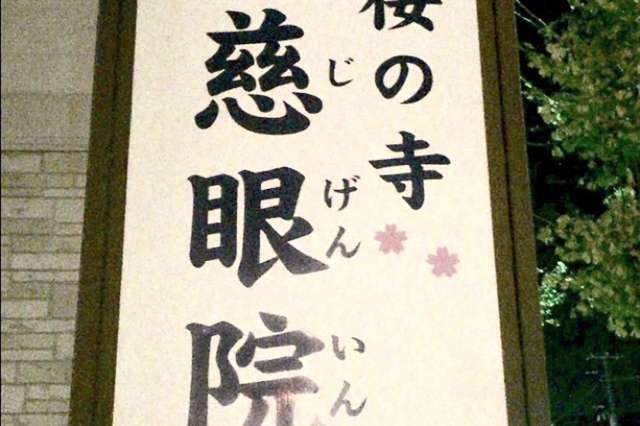 桜の寺
慈眼院
じげんいん